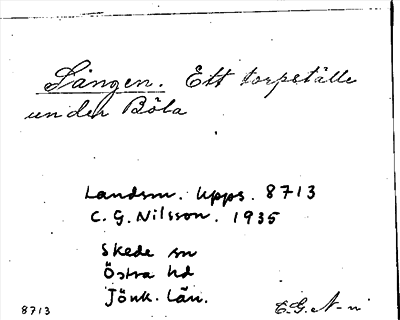 Sången. Ett torpställe
under Böla
Landsm. Upps. 8713
C. G. Nilsson. 1935
Skede sn
Östra hd
Jönk. län.
8713
C.G.N-n